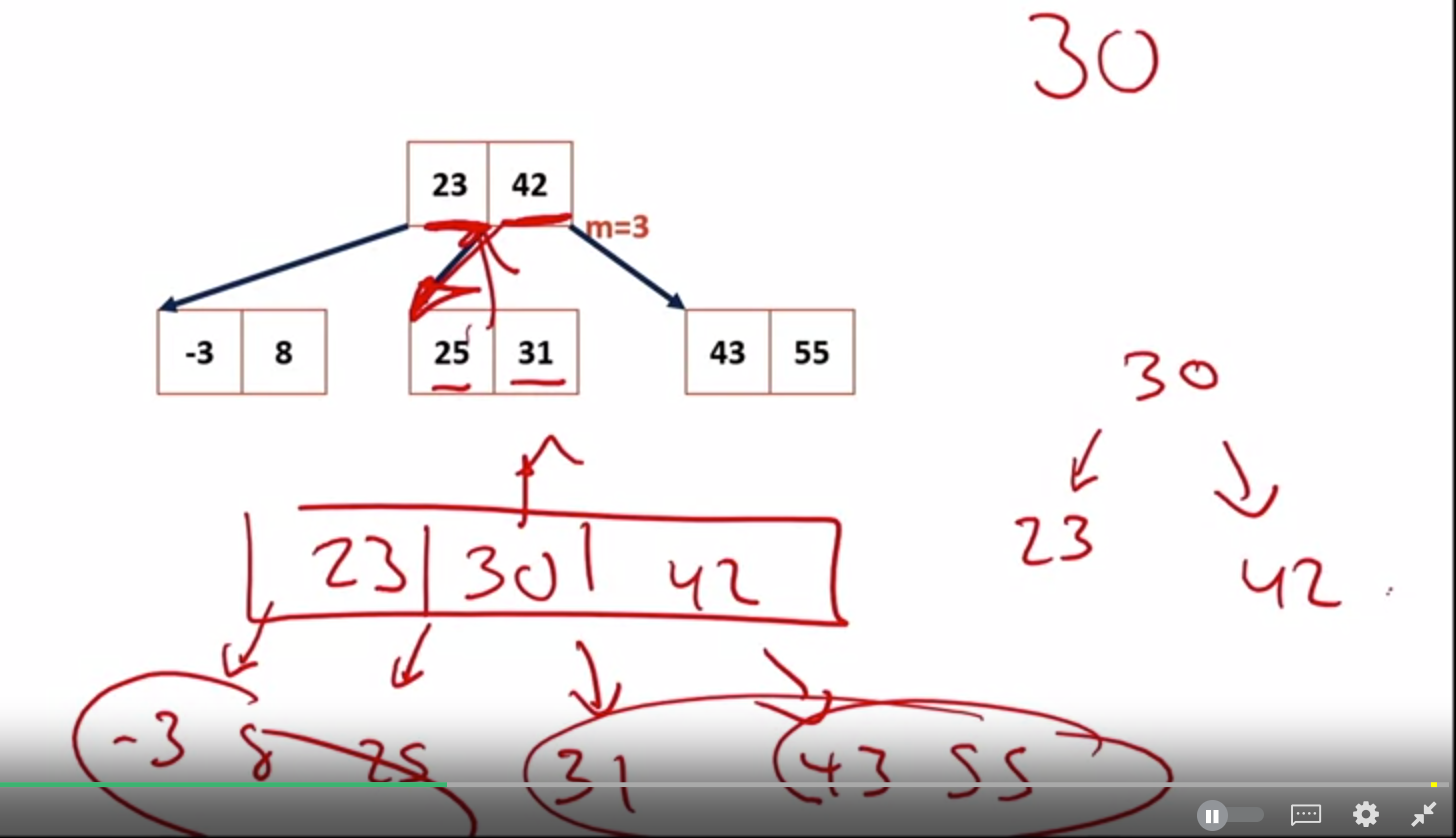 30
23 42
m=3
-3 8 25 31 43 55
30
23 42
23 30 42
-3 8 25 31 43 55